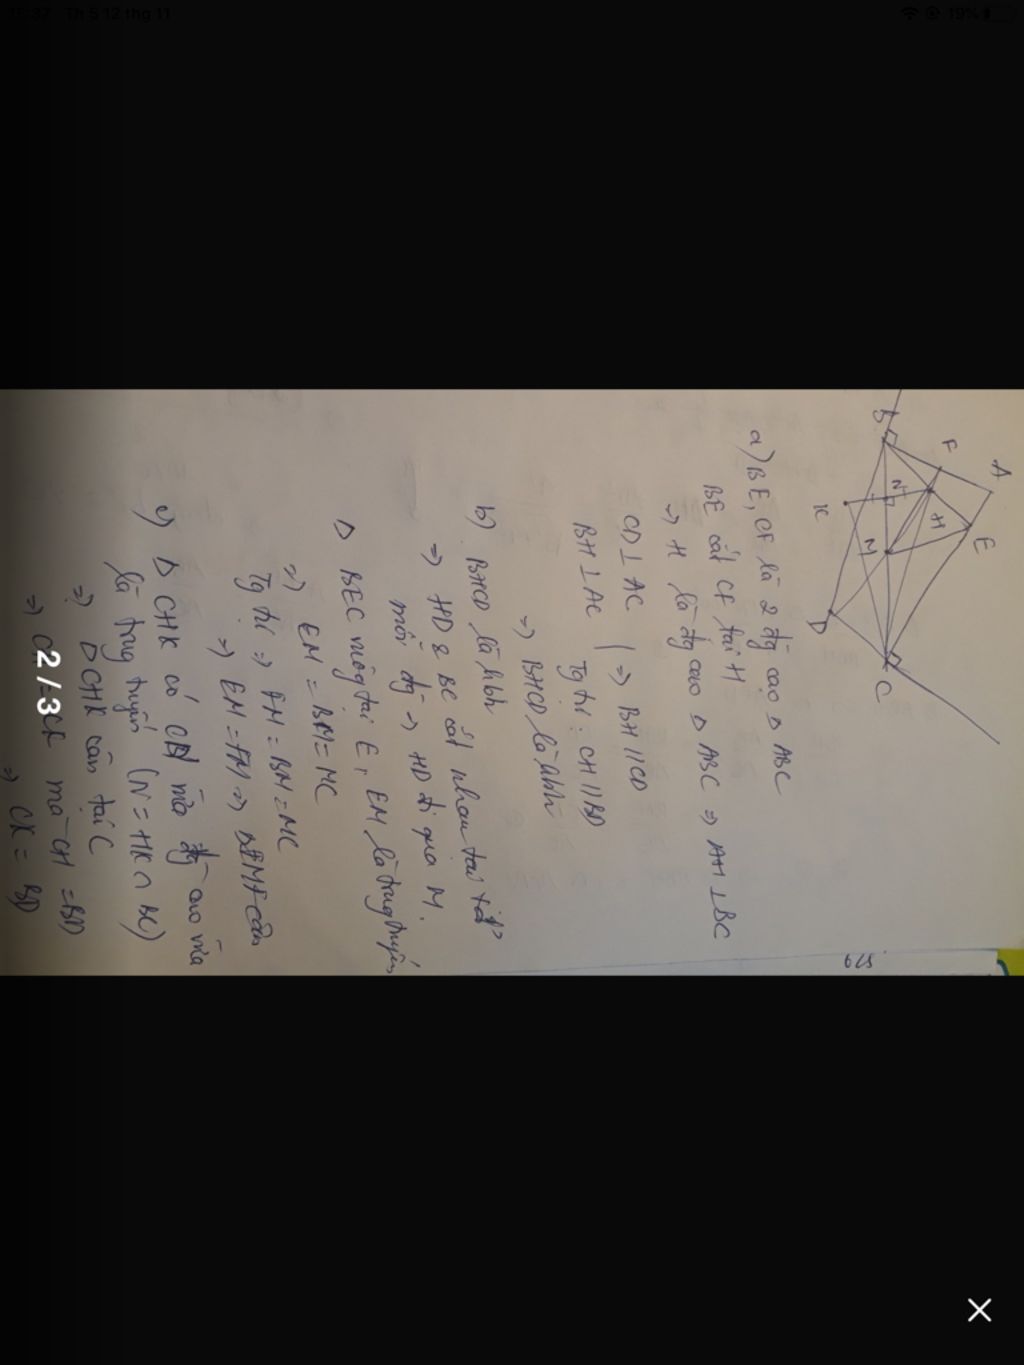 15:37 Th 5 12 thg 11
19%
A
F
E
B
H
N
M
K
D
C
529
a) BE, CF là 2 đg cao Δ ABC
BE cắt CF tại H
=) H là đg cao Δ ABC => AH ⊥ BC
CD ⊥ AC
BH ⊥ AC
=) BH // CD
Tg tự : CH // BD
=) BHCD là hbh
b) BHCD là hbh
=) HD & BC cắt nhau tại
mỗi đg -> HD đi qua M.
Δ BEC vuông tại E, EM là trung tuyến
=) EM = BM = MC
Tg tự => FM = BM = MC
=) EM = FM => ΔEMF cân
c) Δ CHK có vừa đg cao vừa
là trung tuyến (N = HK ∩ BC)
=) Δ CHK cân tại C
=) CK mà CH = BD
=) CK = BD
2 / 3